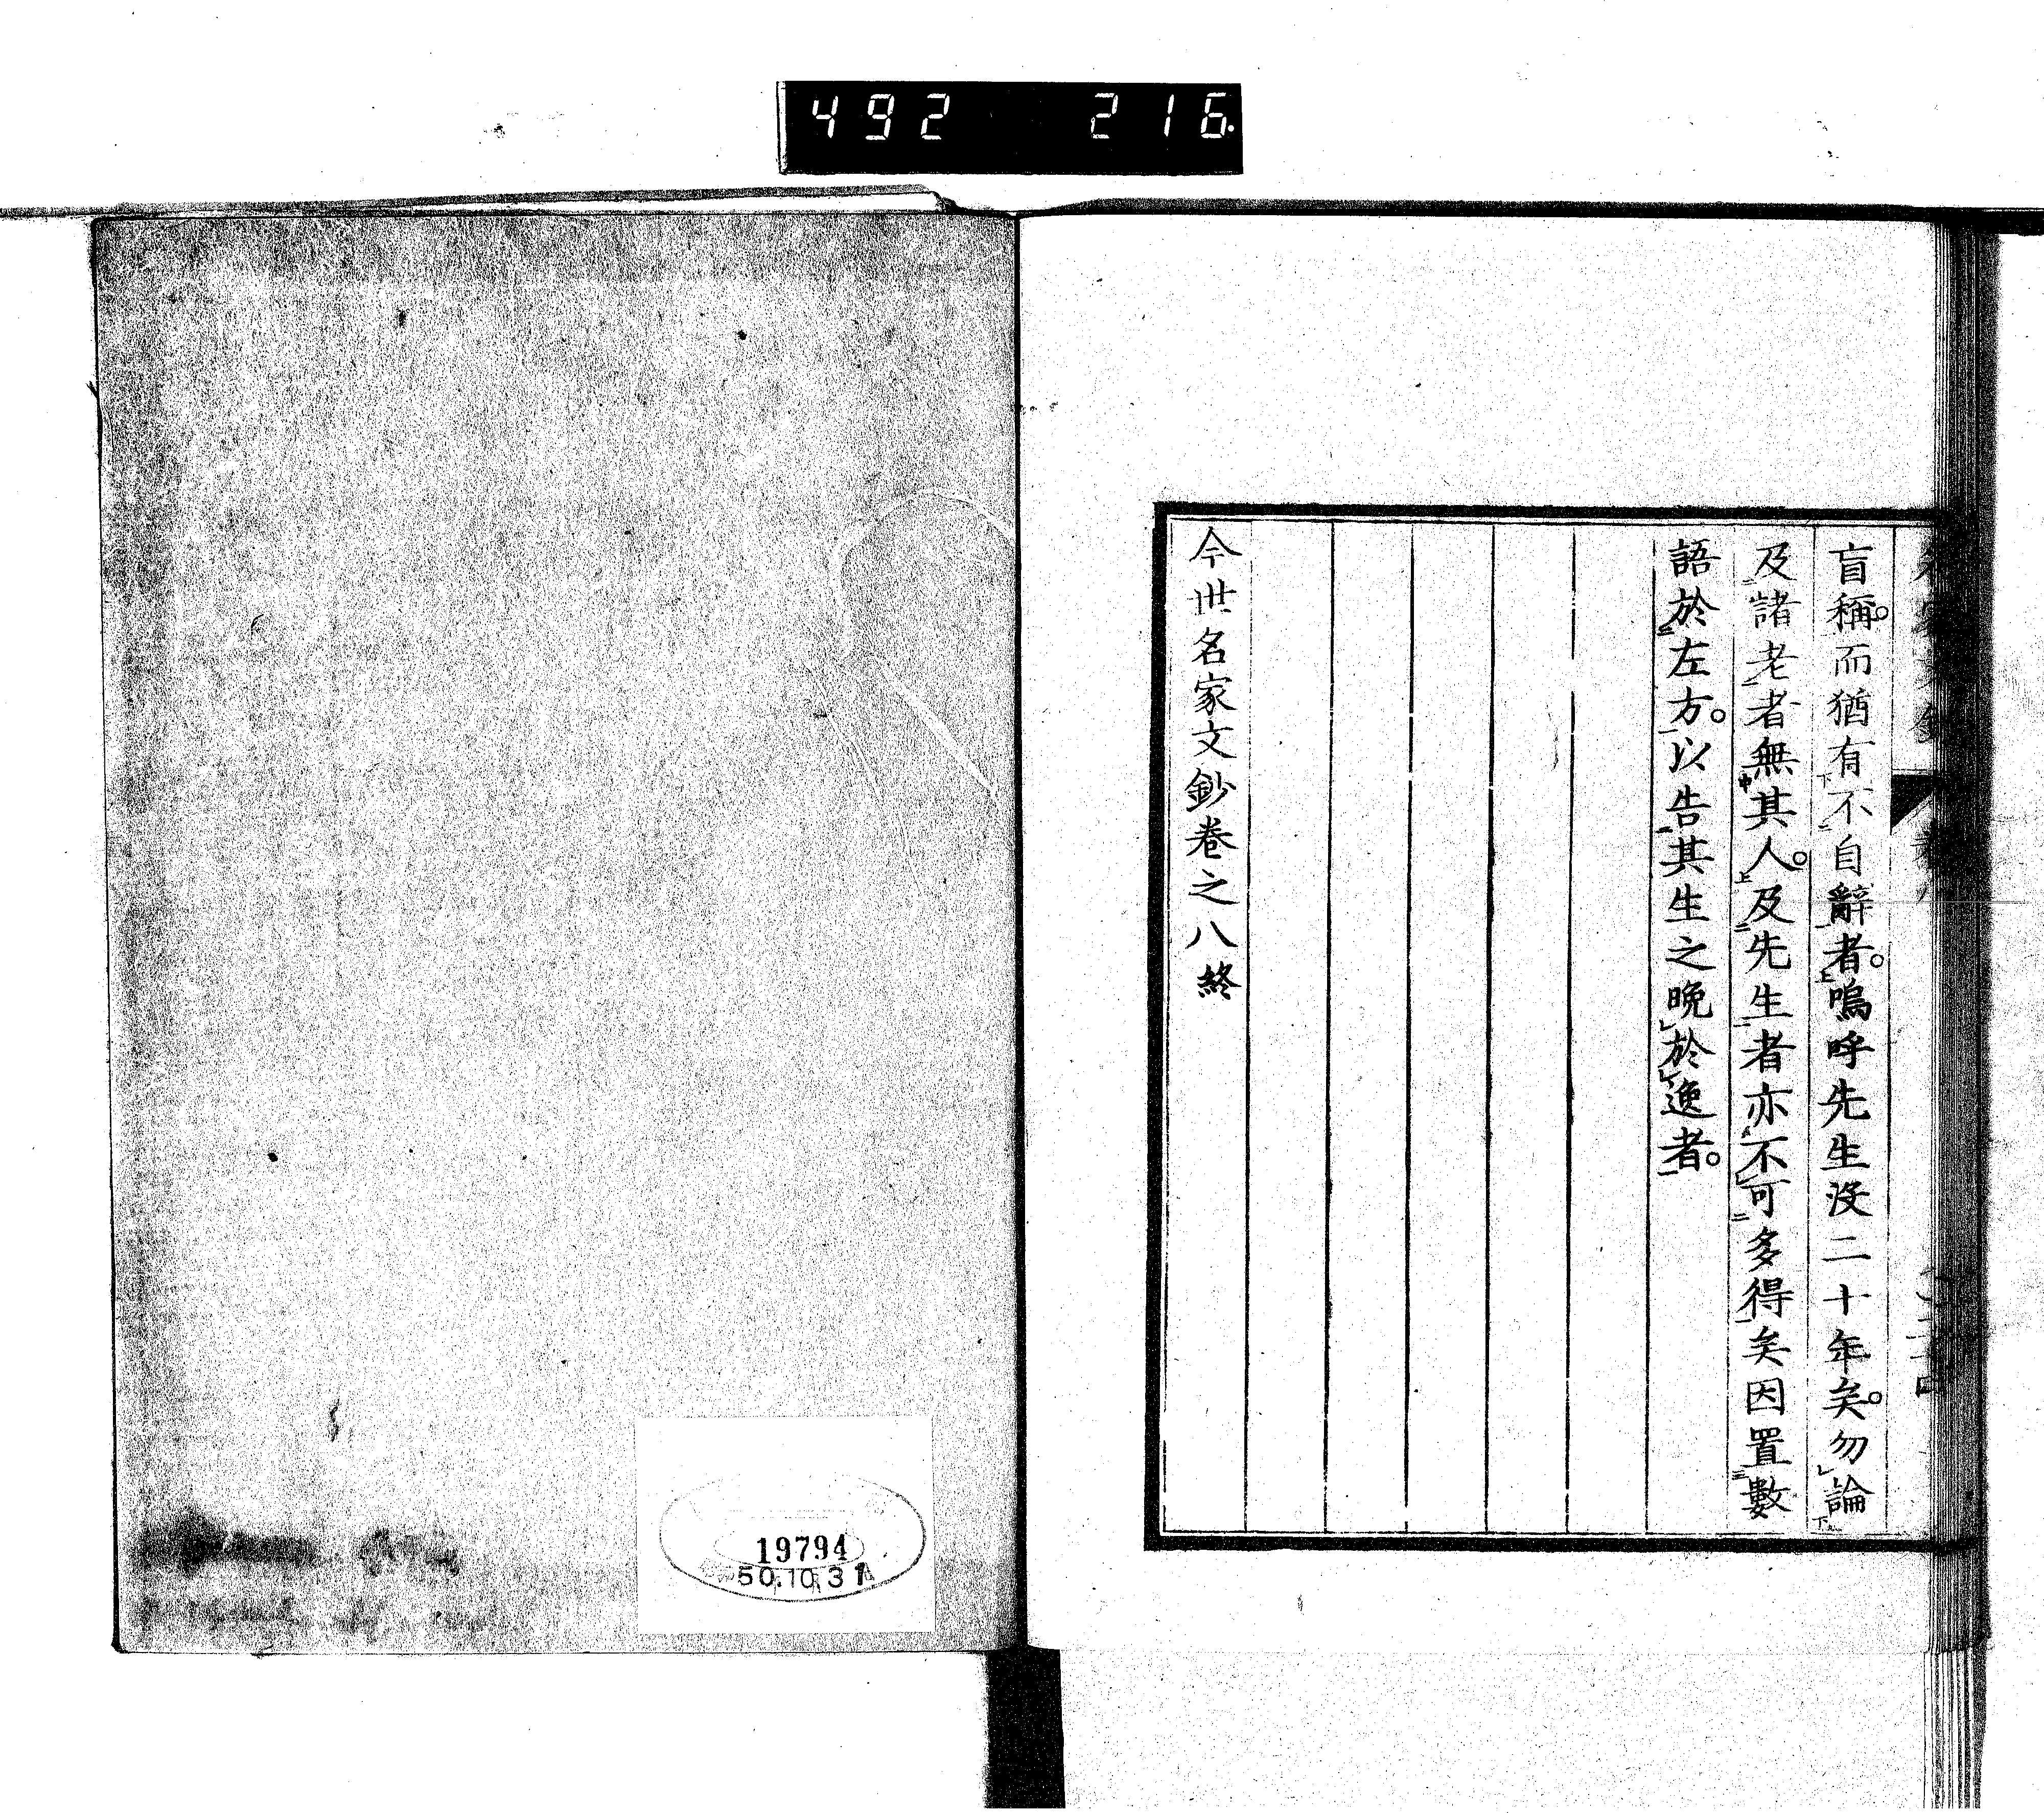 492 216
盲稱。而猶有不自辭者。嗚呼先生沒二十年矣。勿論
及諸老者無其人。及先生者亦不可多得矣因置數
語於左方。以告其生之晚於逸者。
今世名家文鈔卷之八終
19794
50.10.31